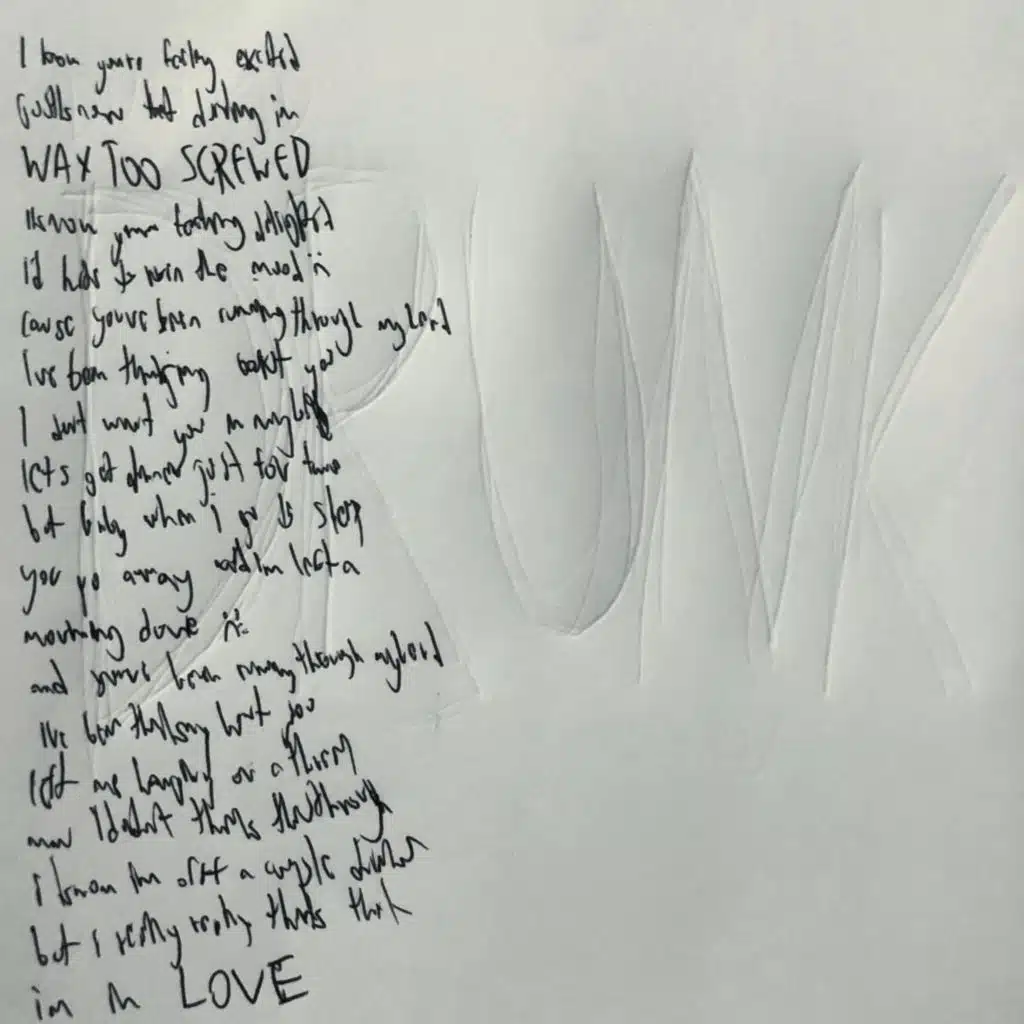 I know youre feeling excited
that driving in
WAY TOO SCREWED
I know youre feeling delighted
I'd hate to ruin the mood in
cause youve been running through my head
Ive been thinking bout you
I dont want you in my
lets get dinner just for two
but baby when i go to sleep
you go away and Im left a
mourning dove in
and youve been running through my head
Ive been thinking bout you
left me hanging on a thread
man I didnt think this through
i know Im off a couple drinks
but i really really think that
im in LOVE
DRUNK